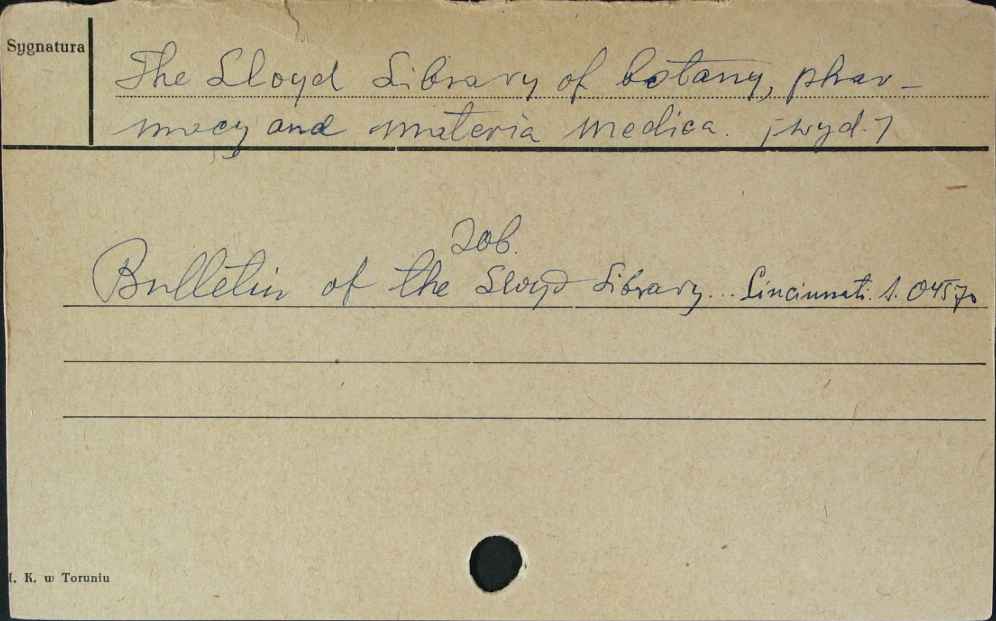 Sygnatura
The Lloyd Library of botany, phar-
macy and materia medica. [wyd.]
Zob.
Bulletin of the Lloyd Library... Cincinnati. s. 04570
K. w Toruniu